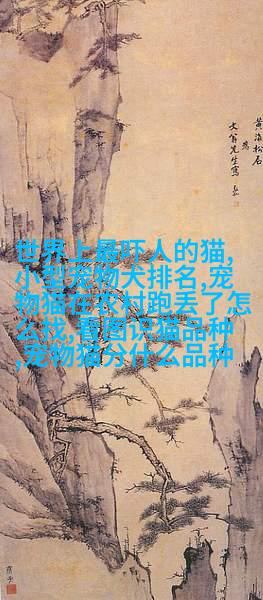 黃海松石
為
先生寫
世界上最吓人的猫,
小型宠物犬排名,宠
物猫在农村跑丢了怎
么找,看图识猫品种
,宠物猫分什么品种